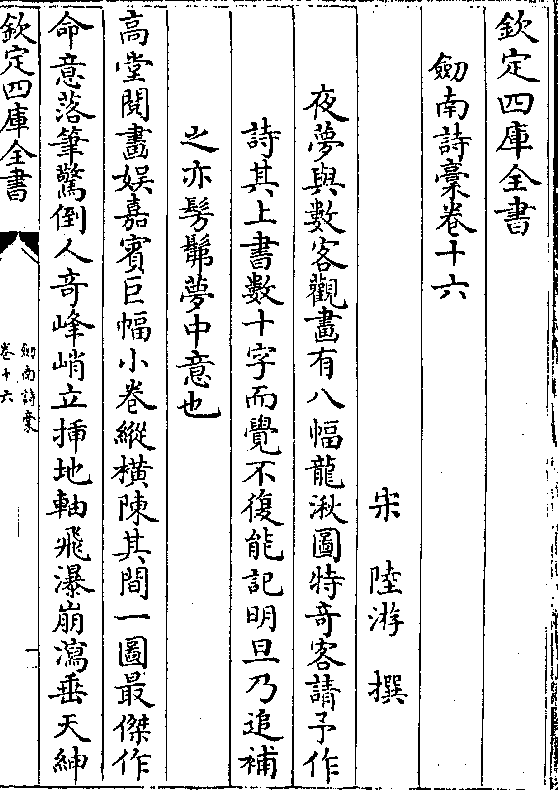 欽定四庫全書
劒南詩稾卷十六
宋 陸游 撰
夜夢與數客觀畫有八幅龍湫圖特奇客請予作
詩其上書數十字而覺不復能記明旦乃追補
之亦髣髴夢中意也
高堂閲畫娱嘉賓巨幅小卷縱横陳其間一圖最傑作
命意落筆驚倒人竒峰峭立揷地軸飛瀑崩瀉垂天紳
欽定四庫全書
劒南詩稾
卷十六
一